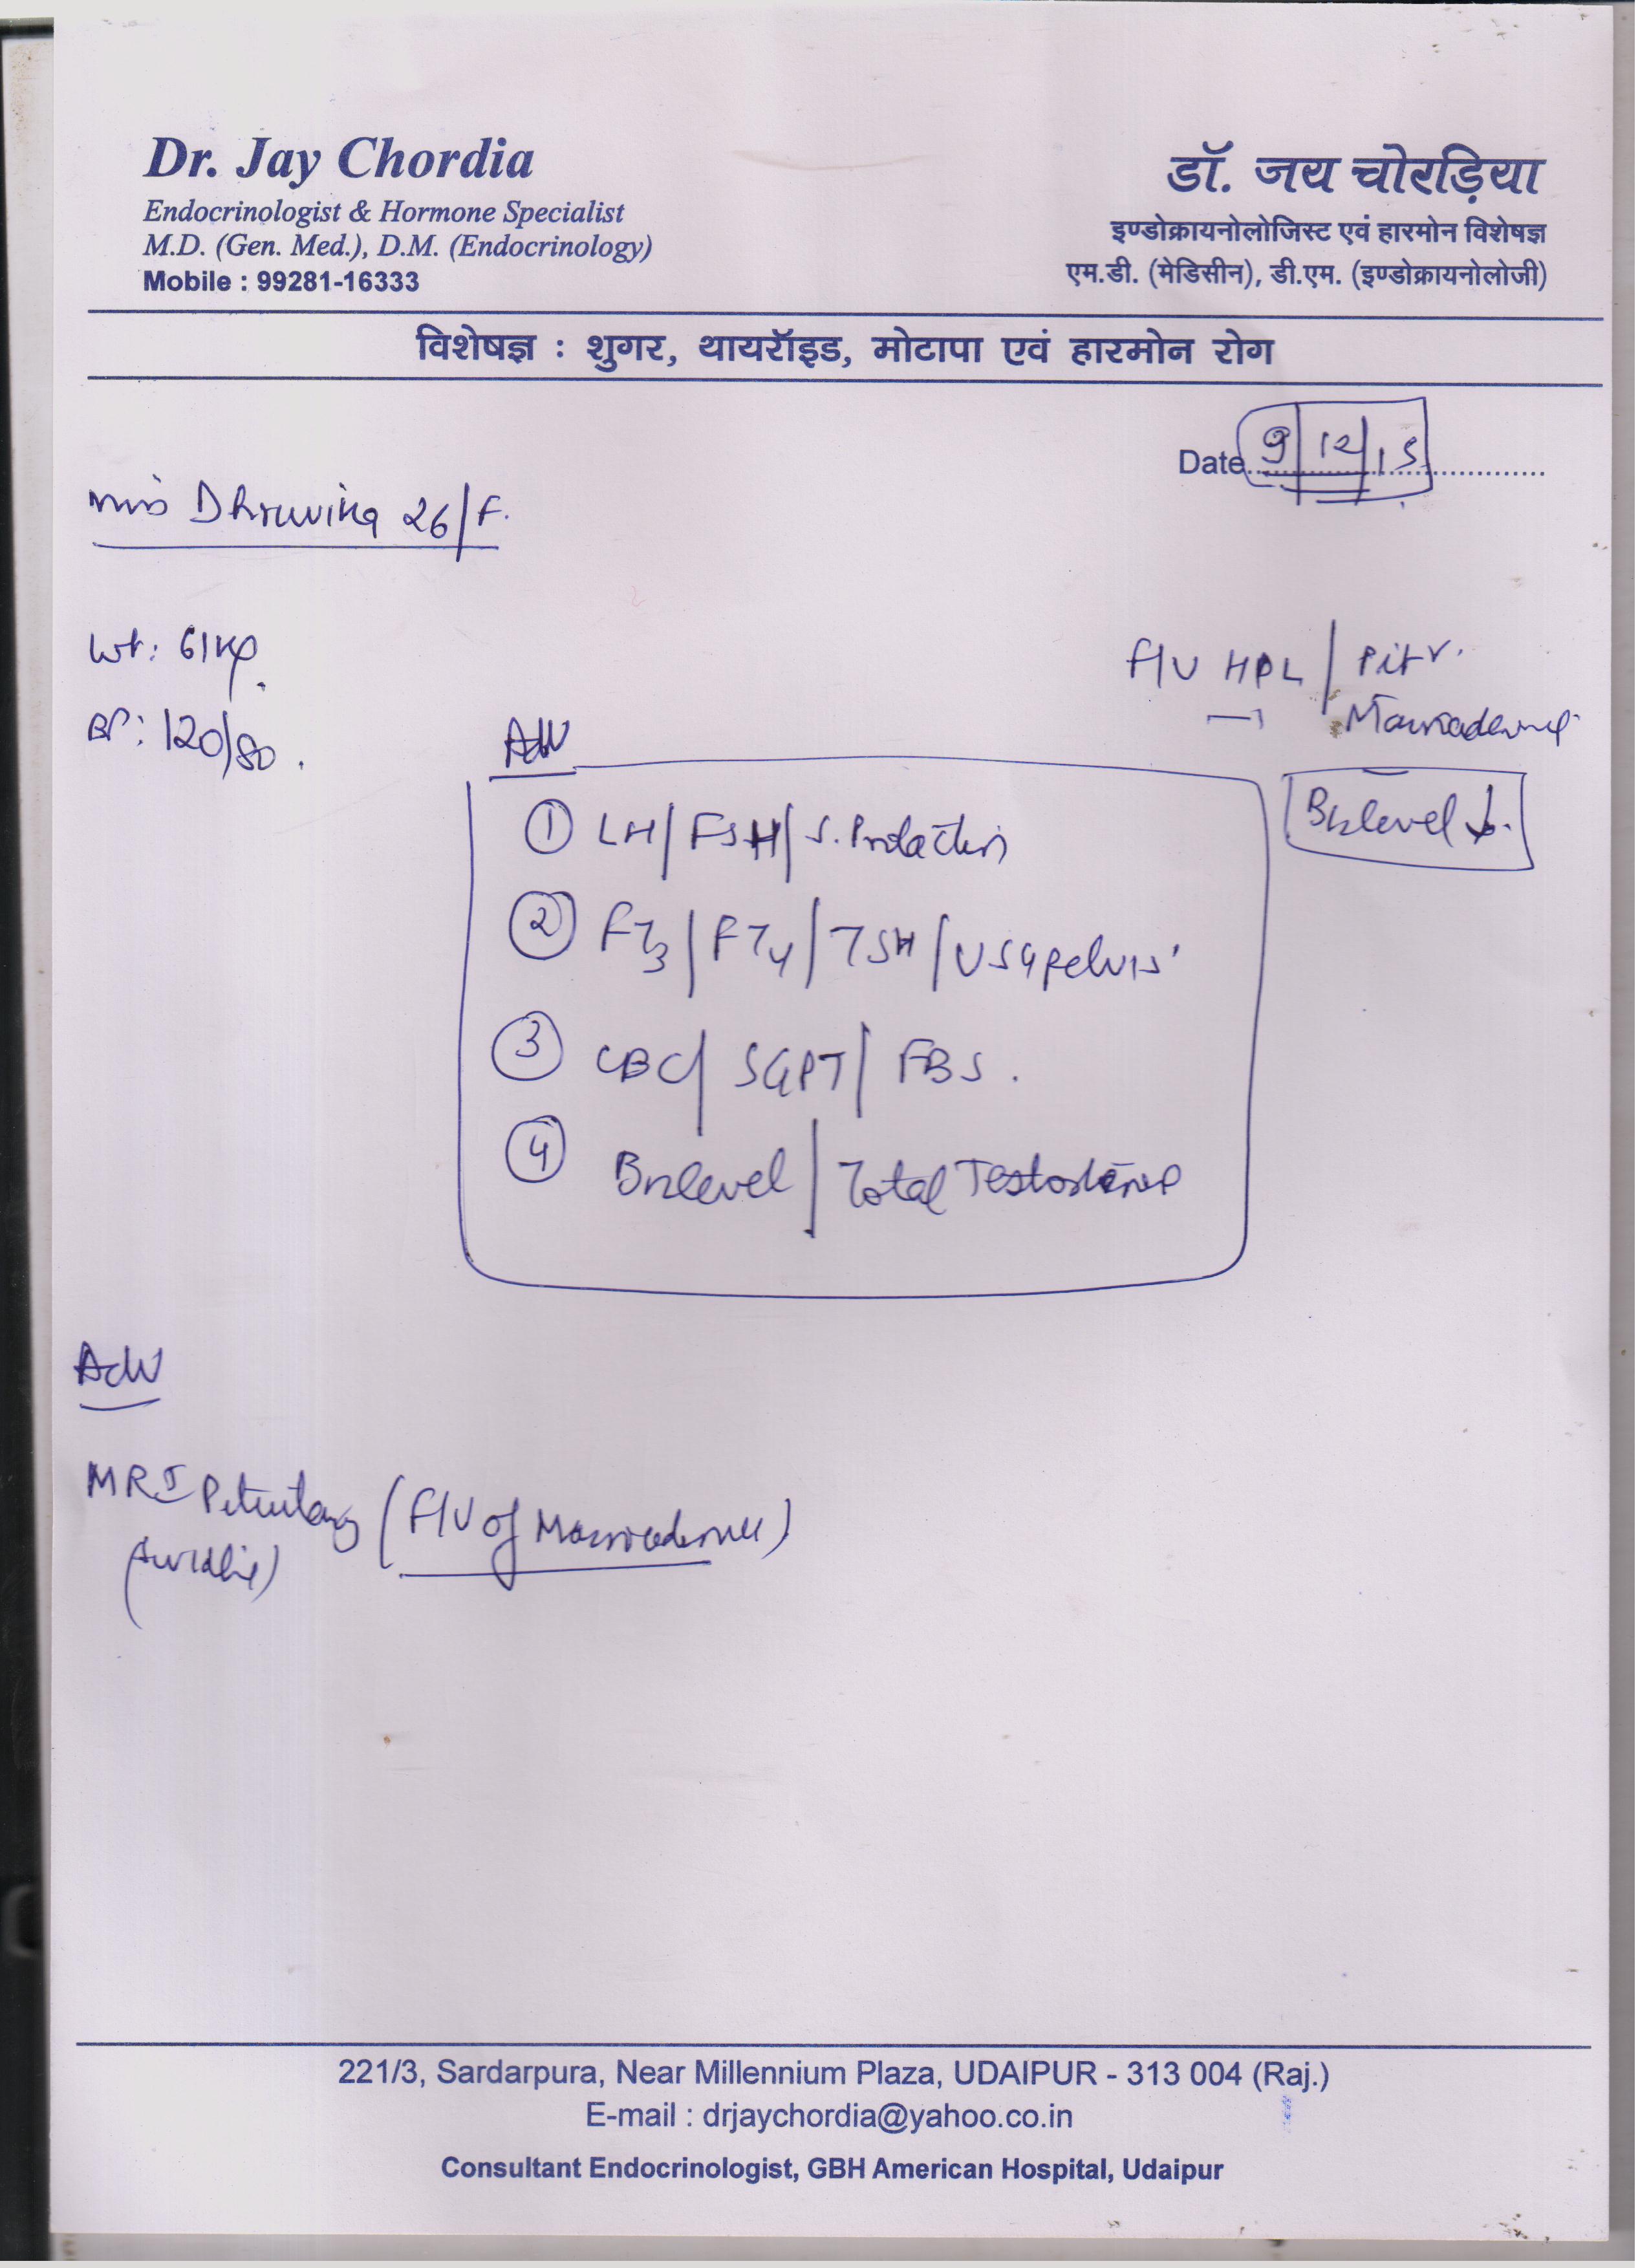 Dr. Jay Chordia
Endocrinologist & Hormone Specialist
M.D. (Gen. Med.), D.M. (Endocrinology)
Mobile : 99281-16333
डॉ. जय चोरड़िया
इण्डोक्रायनोलोजिस्ट एवं हारमोन विशेषज्ञ
एम.डी. (मेडिसीन), डी.एम. (इण्डोक्रायनोलोजी)
विशेषज्ञ : शुगर, थायरॉइड, मोटापा एवं हारमोन रोग
Date 9/12/15
Dhruvika 26/F.
Wt: 61 kg.
BP: 120/80.
F/U HPL / Pitt.
B12 level ↓.
Adv
① LH/FSH/S. Prolactin
② FT3/FT4/TSH/USG pelvis
③ CBC/SGPT/FBS.
④ B12 level/Total Testosterone
Adv
MRI Pituitary (F/U of
221/3, Sardarpura, Near Millennium Plaza, UDAIPUR - 313 004 (Raj.)
E-mail : drjaychordia@yahoo.co.in
Consultant Endocrinologist, GBH American Hospital, Udaipur